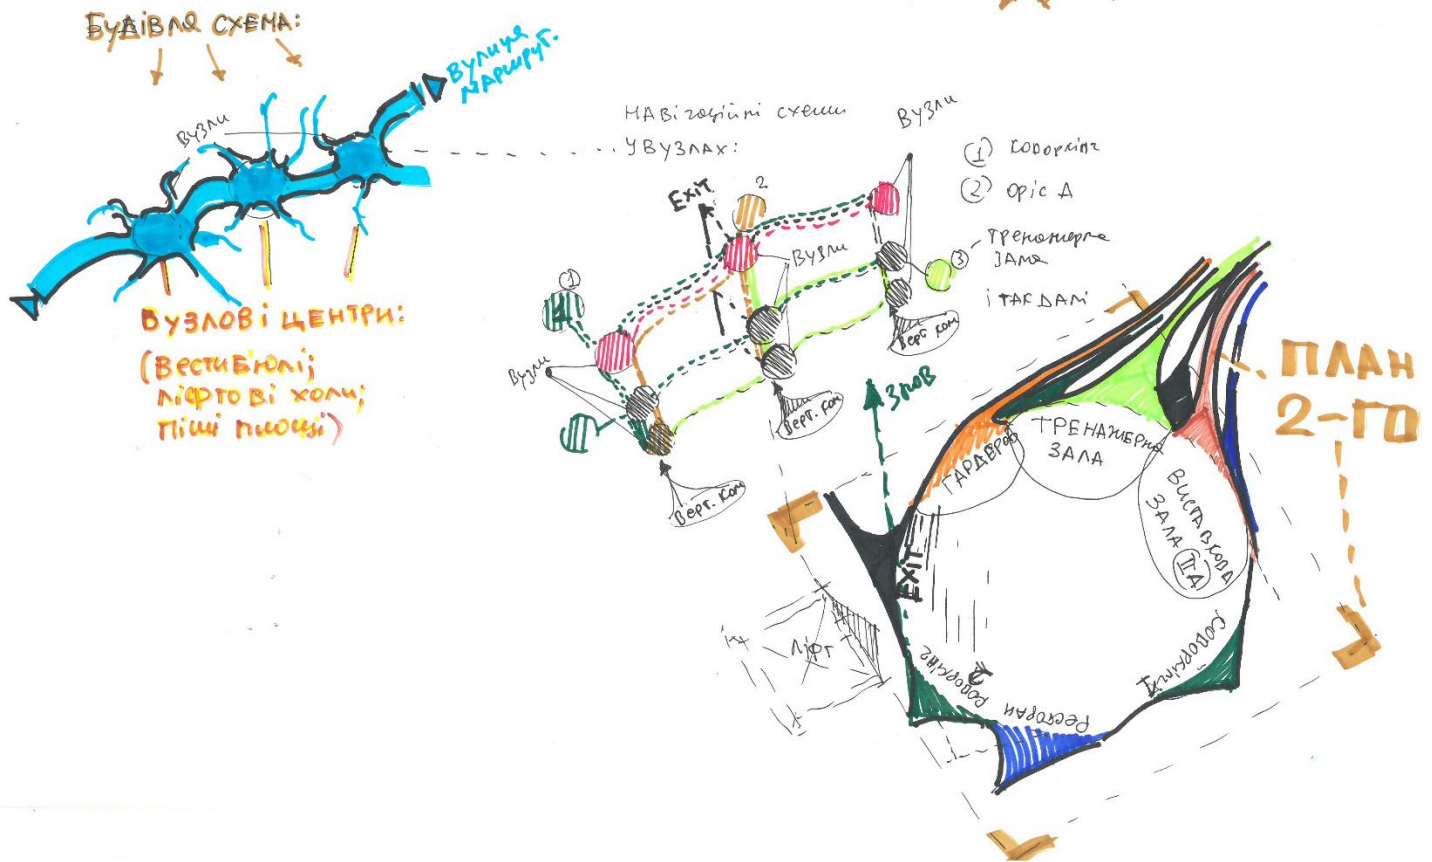 БУДІВЛЯ СХЕМА:
ВУЛИЦЯ
МАРШРУТ.
ВУЗЛИ
ВУЗЛОВІ ЦЕНТРИ:
(ВЕСТИБЮЛІ;
ЛІФТОВІ ХОЛИ;
ПІШІ ПЛОЩІ)
НАВІГАЦІЙНІ СХЕМИ
У ВУЗЛАХ:
ВУЗЛИ
① КОВОРКІНГ
② ОФІС А
③ ТРЕНАЖЕРНА
ЗАЛА
І ТАК ДАЛІ
EXIT
2
1
ВУЗЛИ
ВУЗЛИ
ВЕРТ. КОМ
ВЕРТ. КОМ
ВЕРТ. КОМ
ПЛАН
2-ГО
ГАРДЕРОБ
ТРЕНАЖЕРНА
ЗАЛА
ВИСТАВКОВА
ЗАЛА
ІІА
EXIT
ЛІФТ
КОВОРКІНГ
2
РЕСТОРАН
КОВОРКІНГ І